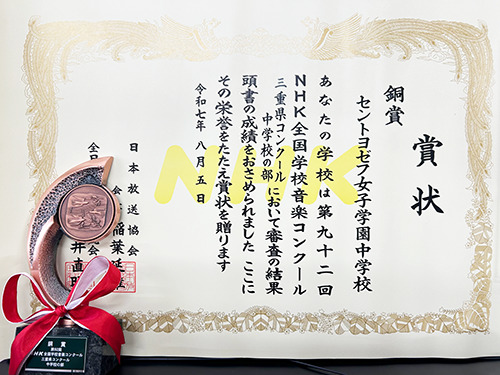 賞状
銅賞
セントヨゼフ女子学園中学校
あなたの学校は第九十二回
NHK全国学校音楽コンクール
三重県コンクール
中学校の部
において審査の結果
頭書の成績をおさめられました ここに
その栄誉をたたえ賞状を贈ります
令和七年 八月五日
日本放送協会
稲葉延
井直
NHK
銅賞
第92回
NHK全国学校音楽コンクール
三重県コンクール
中学校の部